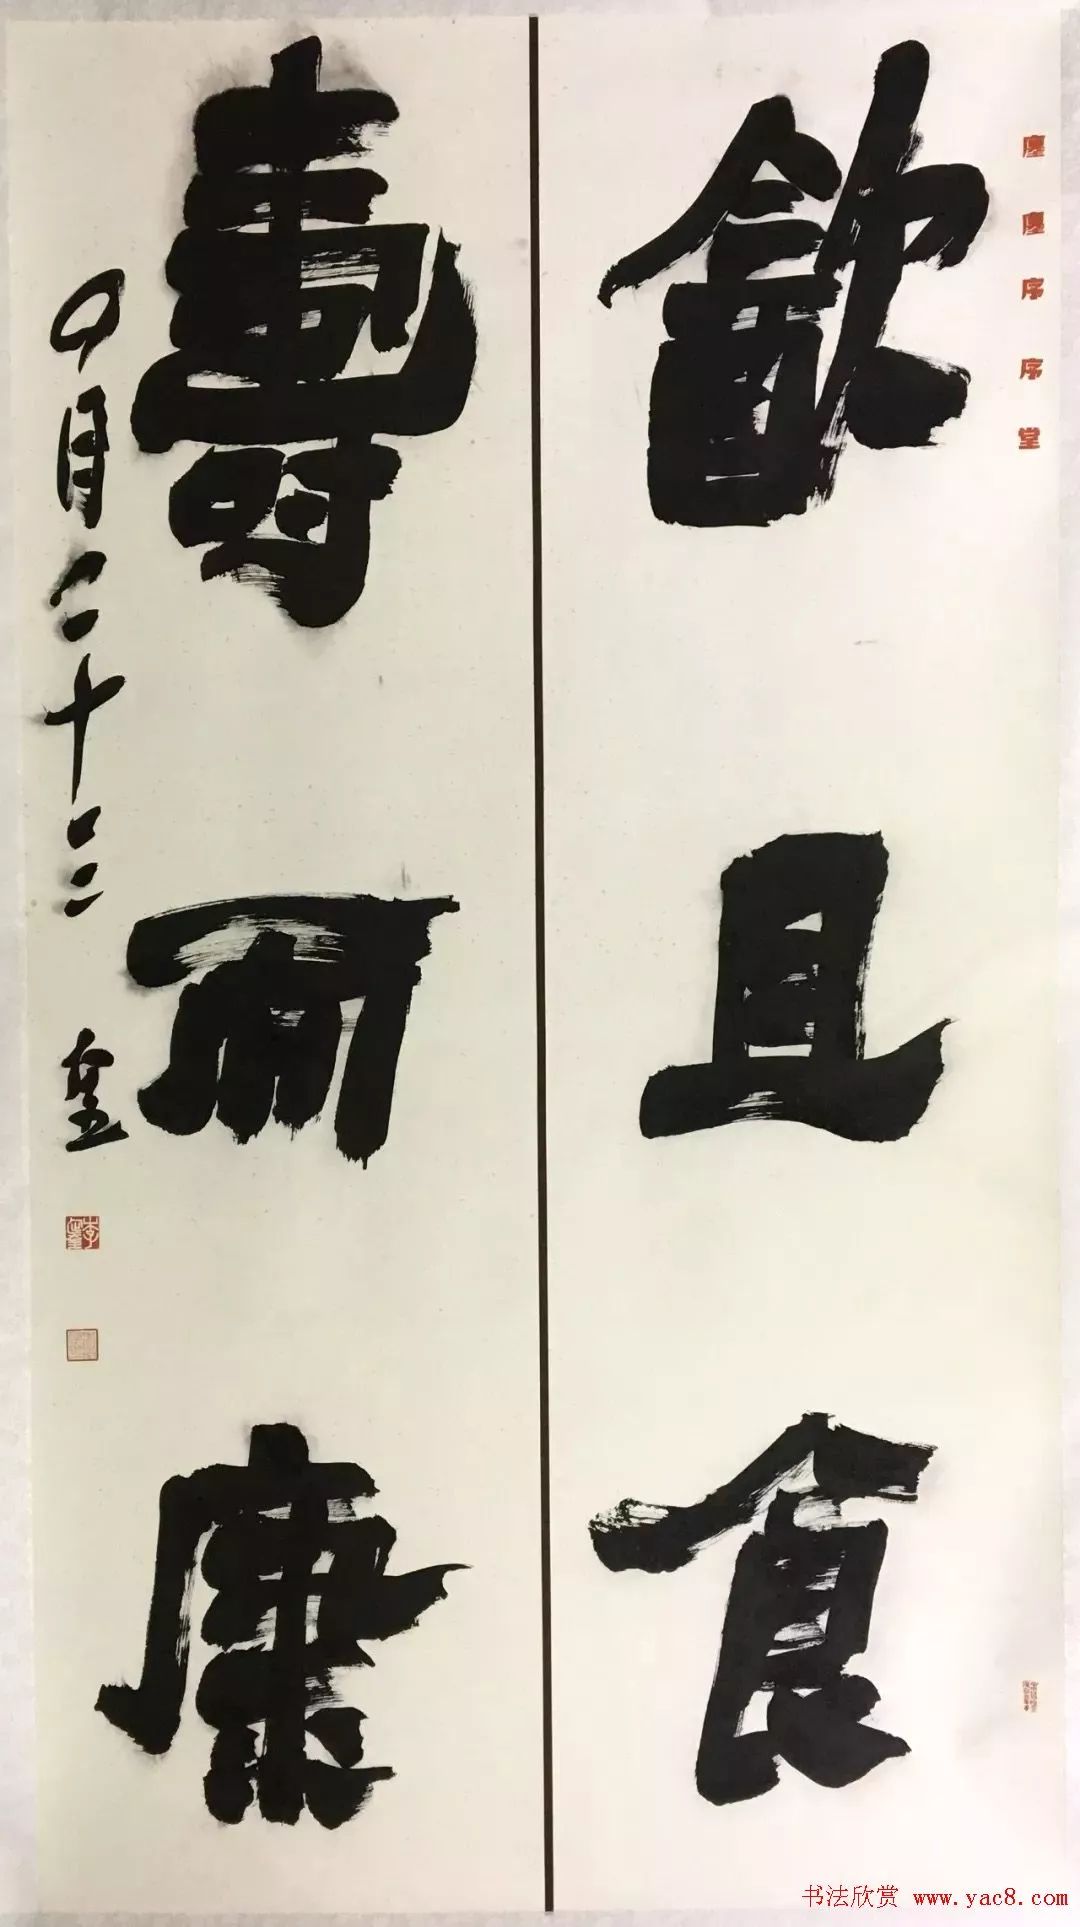 飲且食
壽而康
四月二十三
书法欣赏 www.yac8.com